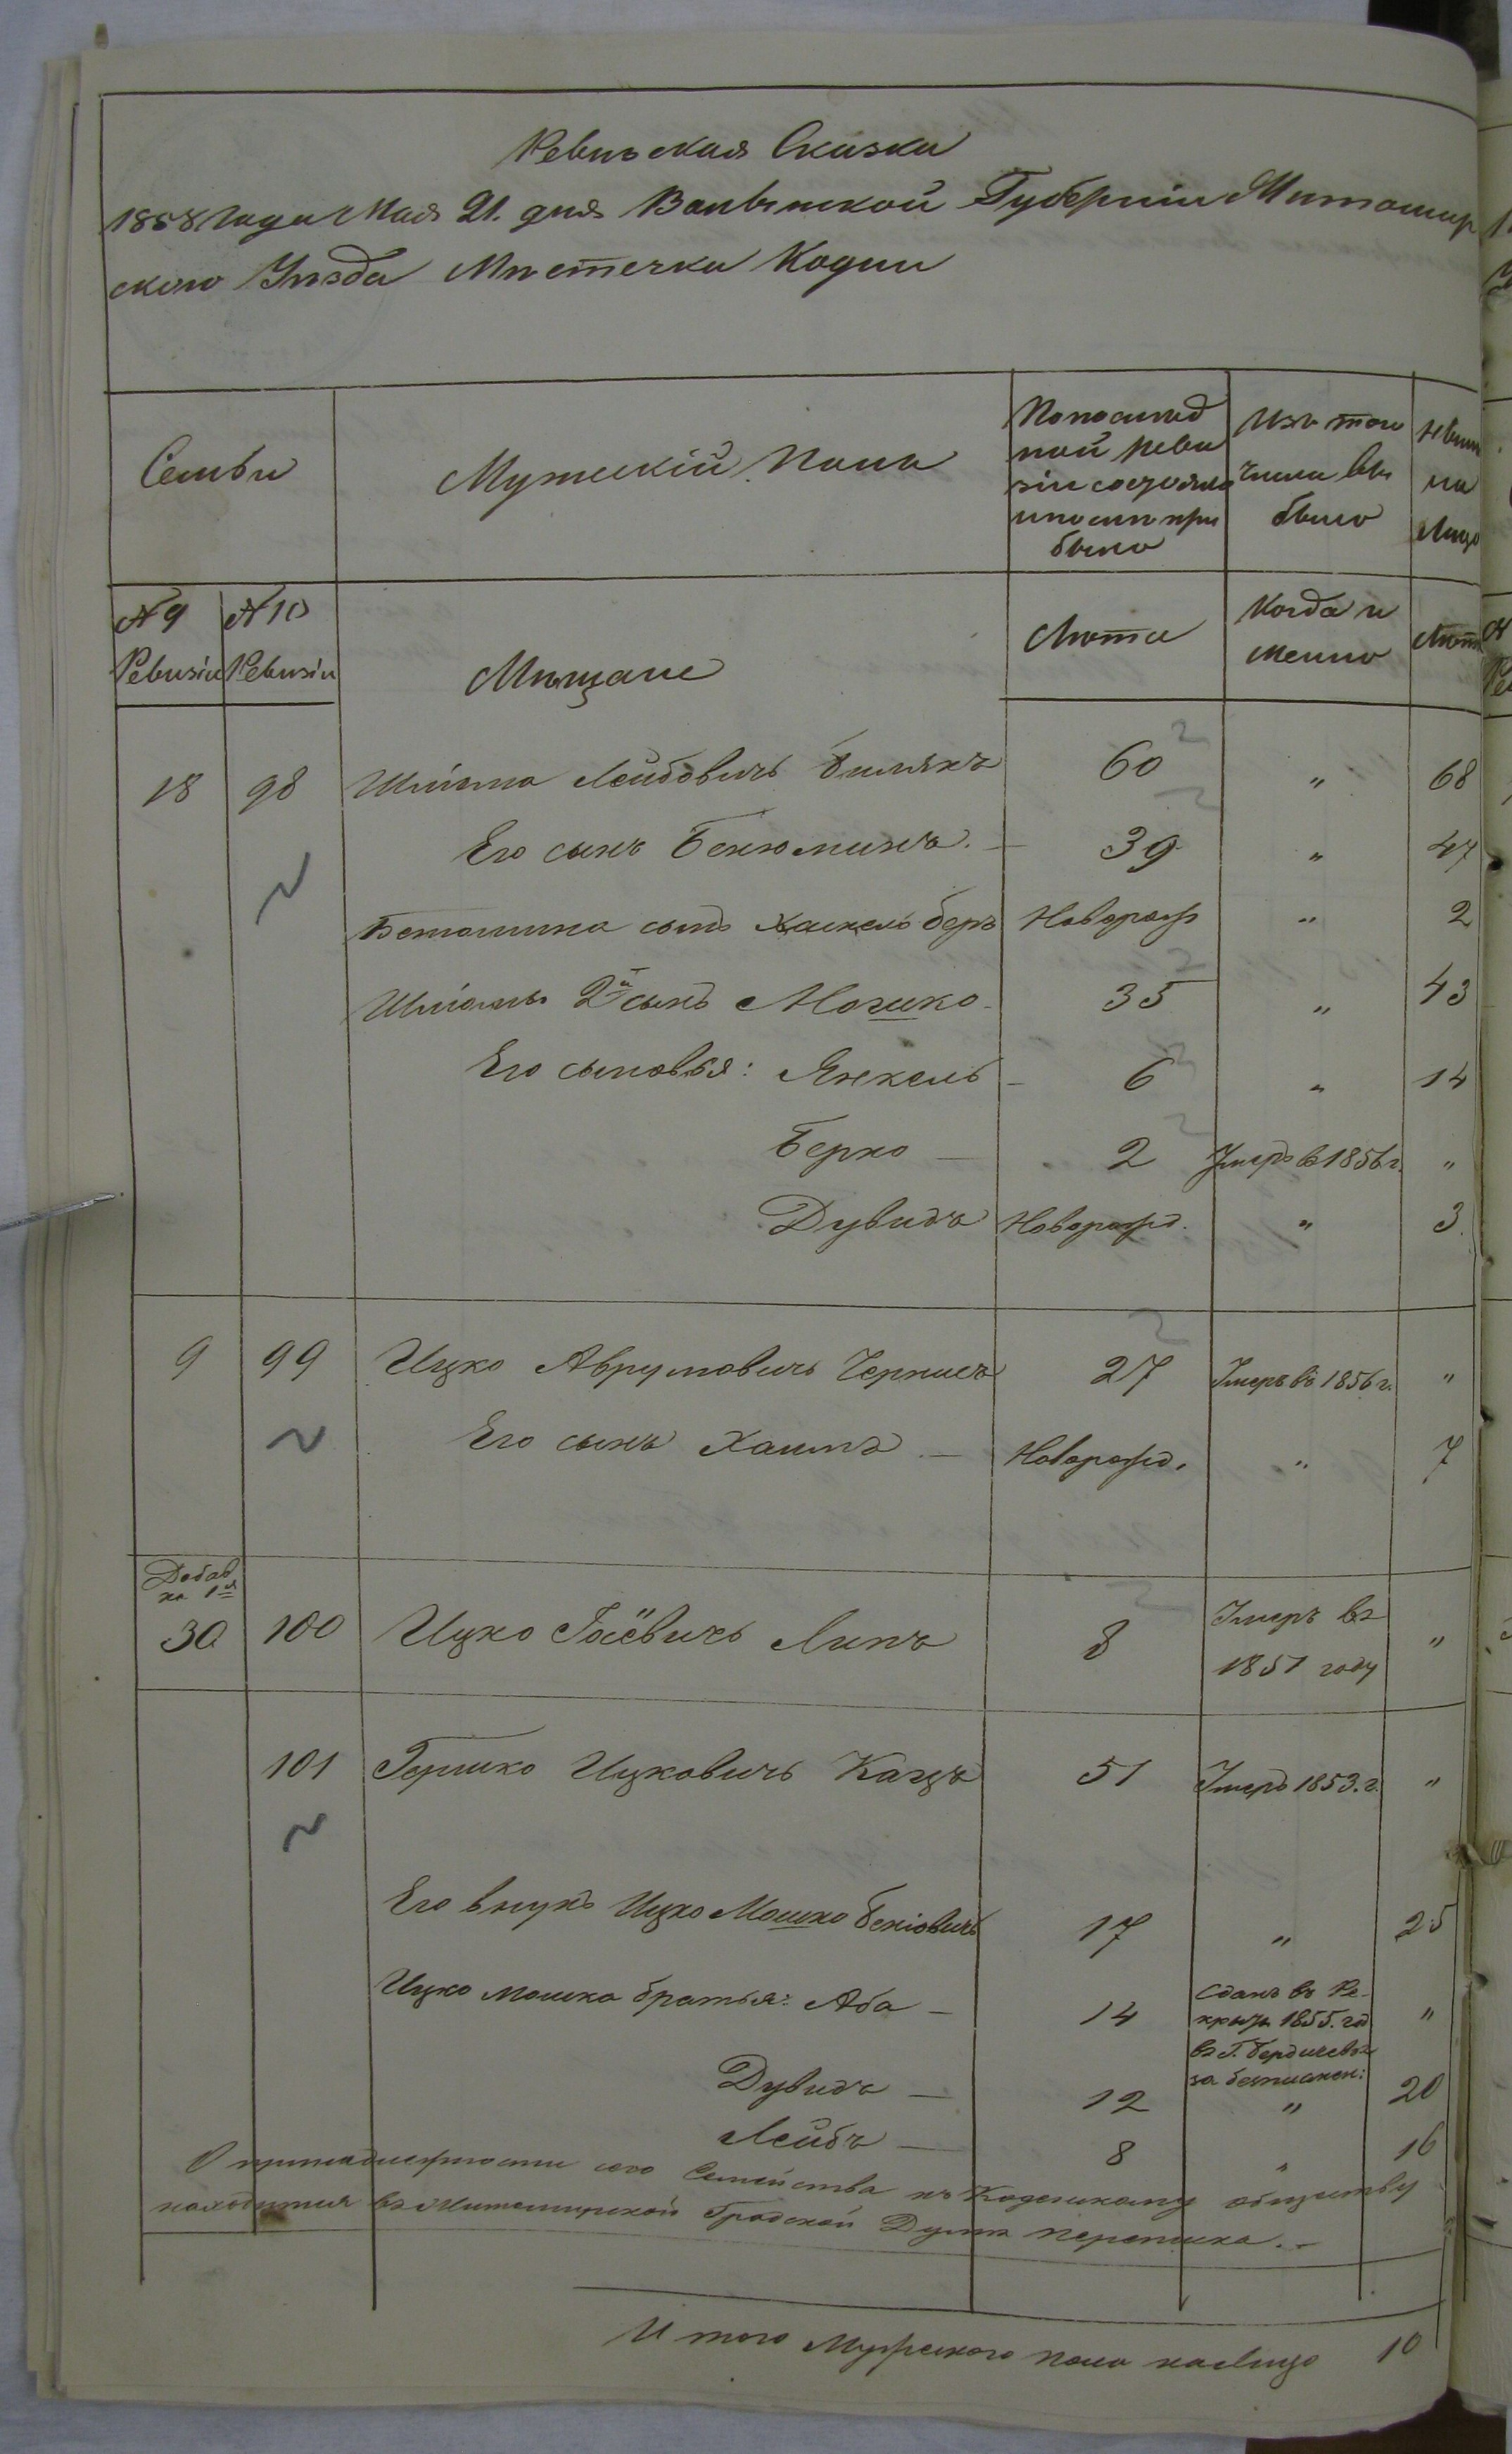 Ревизская Сказка
1858 года Мая 21. дня Волынской Губерніи Житомир
ского Уезда Местечка Кодни
Семьи
Мужескій Полъ
По послед
ней реви
зіи состояло
и после при
было
Изъ того
числа вы
было
Ныне
на
лицо
№ 9
Ревизіи
№ 10
Ревизіи
Мещане
Лета
Когда и
менно
Лета
18 98 Шліома Лейбовичъ Билякъ 60 " 68
Его сынъ Бенюминъ. — 39 " 47
Бенюмина сынъ Хаскель беръ Новорож " 2
Шліомы 2й сынъ Мошко 35 " 43
Его сыновья: Янкель — 6 " 14
Берко — 2 Умеръ в 1856 г. "
Дувидъ Новорожд. " 3.
9 99 Ицко Аврумовичъ Чернисъ 27 Умеръ въ 1856 г. "
Его сынъ Хаимъ — Новорожд. " 7
Добав
на 1я
30 100 Ицко Гоёвичъ Липъ 8 Умеръ въ
1851 году "
101 Гершко Ицковичъ Кацъ 51 Умеръ 1853. г. "
Его внукъ Ицко Мошко Беніовичъ 17 " 25
Ицко Мошка братья: Аба — 14 Сданъ въ Ре-
круты 1855. год
въ Г. Бердичевъ
за безписмен: "
Дувидъ — 12 " 20
Лейбъ — 8 " 16
О принадлежности сего Семейства къ Коденскому обществу
находится въ Житомирской Градской Думе переписка. —
Итого Мужеского пола налицо 10